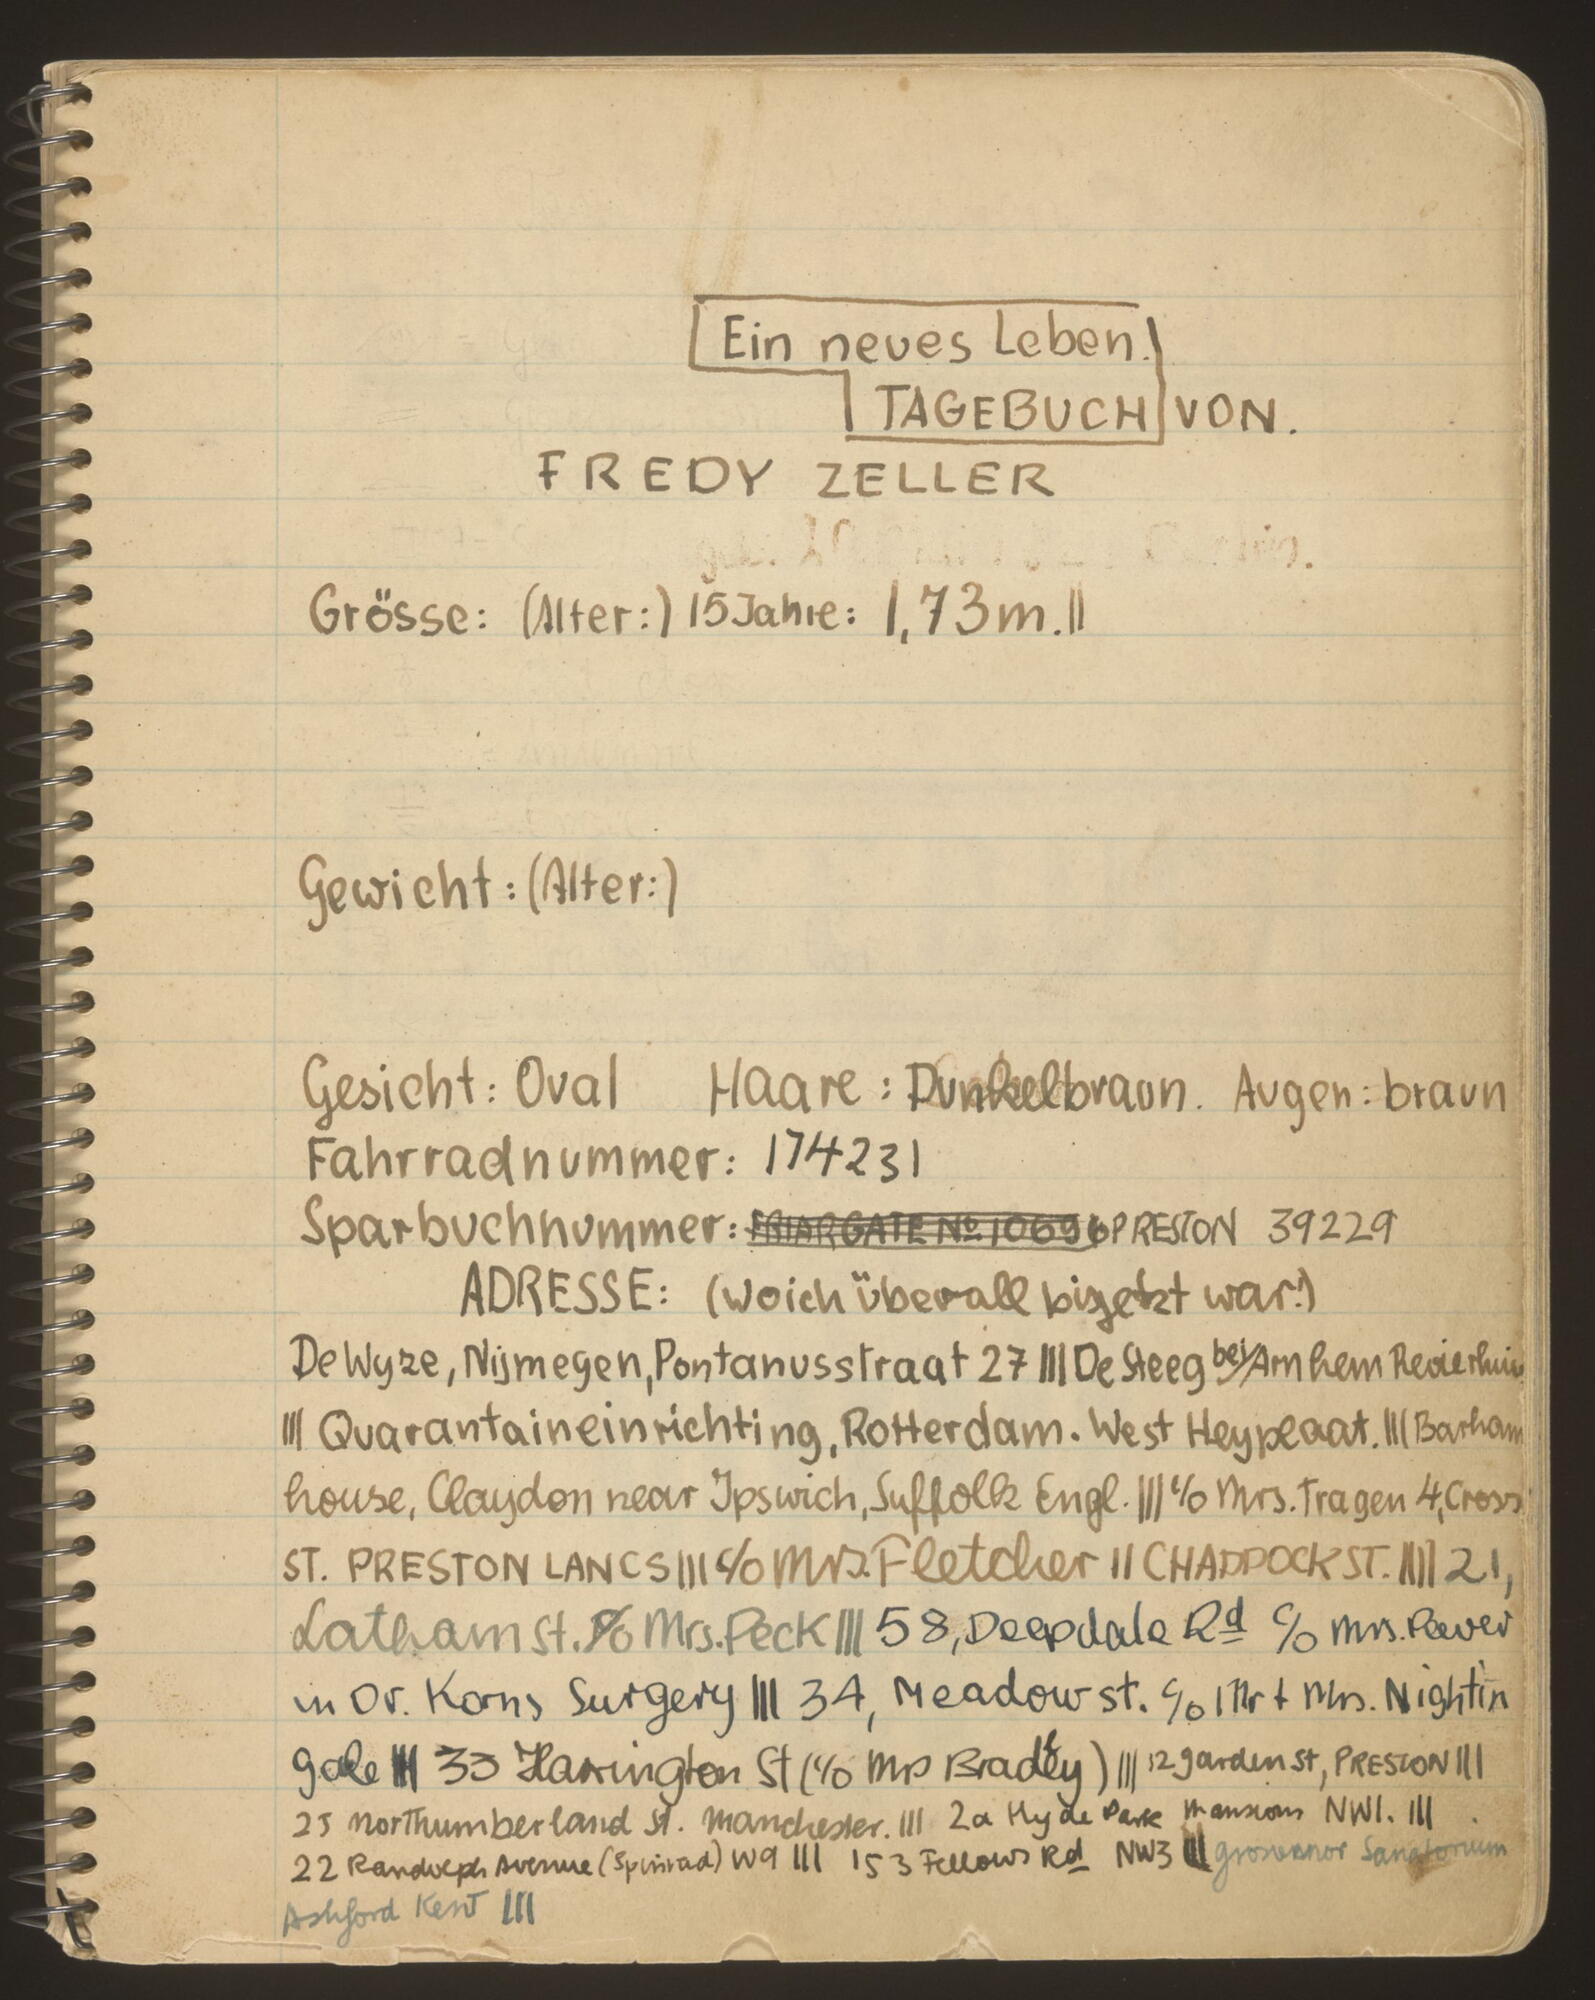 Ein neues Leben.
TAGEBUCH VON.
FREDY ZELLER
Grösse: (Alter:) 15 Jahre: 1,73m.||
Gewicht: (Alter:)
Gesicht: Oval Haare: Dunkelbraun. Augen: braun
Fahrradnummer: 174231
Sparbuchnummer: FRIARGATE No 10696 PRESTON 39229
ADRESSE: (wo ich überall bisjetzt war!)
De Wyze, Nijmegen, Pontanusstraat 27 ||| De Steeg bei/Arnhem
||| Quarantaineinrichting, Rotterdam. West Heyplaat. ||| Barham
house, Claydon near Ipswich, Suffolk Engl. ||| c/o Mrs. Tragen 4, Cross
ST. PRESTON LANCS ||| c/o Mrs. Fletcher 11 CHADDOCK ST. |||| 21,
Latham St. c/o Mrs. Peck ||| 58, Deepdale Rd c/o Mrs.
in Dr. Korns Surgery ||| 34, Meadow st. c/o Mr + Mrs. Nightin
gale ||| 33 Harrington St (c/o Mrs Bradley) ||| 12 garden st, PRESTON |||
25 Northumberland St. Manchester. ||| 2a Hyde Park Mansions NW1. |||
22 Randolph Avenue (Spinrad) W9 ||| 153 Fellows Rd NW3 ||| grosvenor Sanatorium
Ashford Kent |||